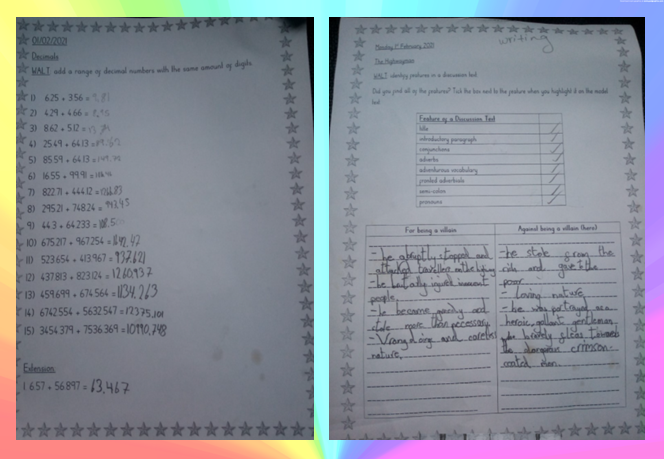 01/02/2021
Decimals
WALT: add a range of decimal numbers with the same amount of digits.
1) 6.25 + 3.56 = 9.81
2) 4.29 + 4.66 = 8.95
3) 8.62 + 5.12 =
4) 25.49 + 64.13 =
5) 85.59 + 64.13 =
6) 16.55 + 99.91 =
7) 822.71 + 444.12 =
8) 295.21 + 748.24 =
9) 44.3 + 64.233 =
10) 675.217 + 967.254 =
11) 523.654 + 413.967 = 937.621
12) 437.813 + 823.124 = 1260.937
13) 459.699 + 674.564 = 1134.263
14) 6742.554 + 5632.547 = 12375.101
15) 3454.379 + 7536.369 = 10990.748
Extension:
1. 6.57 + 56.897 = 63.467
writing
Monday 1st February 2021
The Highwayman
WALT: identify features in a discussion text
Did you find all of the features? Tick the box next to the feature when you highlight it on the model
text
Feature of a Discussion Text
title
introductory paragraph
conjunctions
adverbs
adventurous vocabulary
fronted adverbials
semi-colon
pronouns
For being a villain
Against being a villain (hero)
- he abruptly stopped and
attacked traveller on the highway
- he brutally injured innocent
people.
- he became greedy and
stole more than necessary
- Wrongdoing and careless
nature.
- he stole from the
rich and gave to the
poor
- loving nature
- he was portrayed as a
heroic, gallant gentleman
who bravely through
the dangerous crimson-
coated men.